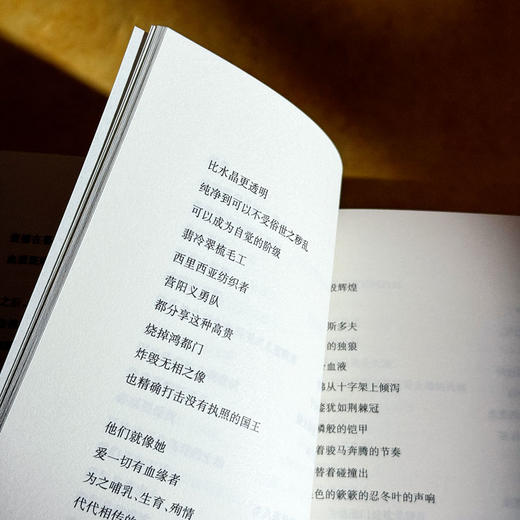 比水晶更透明
纯净到可以不受俗世之移乱
可以成为自觉的阶级
翡冷翠梳毛工
西里西亚纺织者
营阳义勇队
都分享这种高贵
烧掉鸿都门
炸毁无相之像
也精确打击没有执照的国王
他们就像她
爱一切有血缘者
为之哺乳、生育、殉情
代代相传的
辉煌
斯多夫
的独狼
血液
从十字架上倾泻
犹如荆棘冠
鳞般的铠甲
着骏马奔腾的节奏
替着碰撞出
色的簌簌的忍冬叶的声响